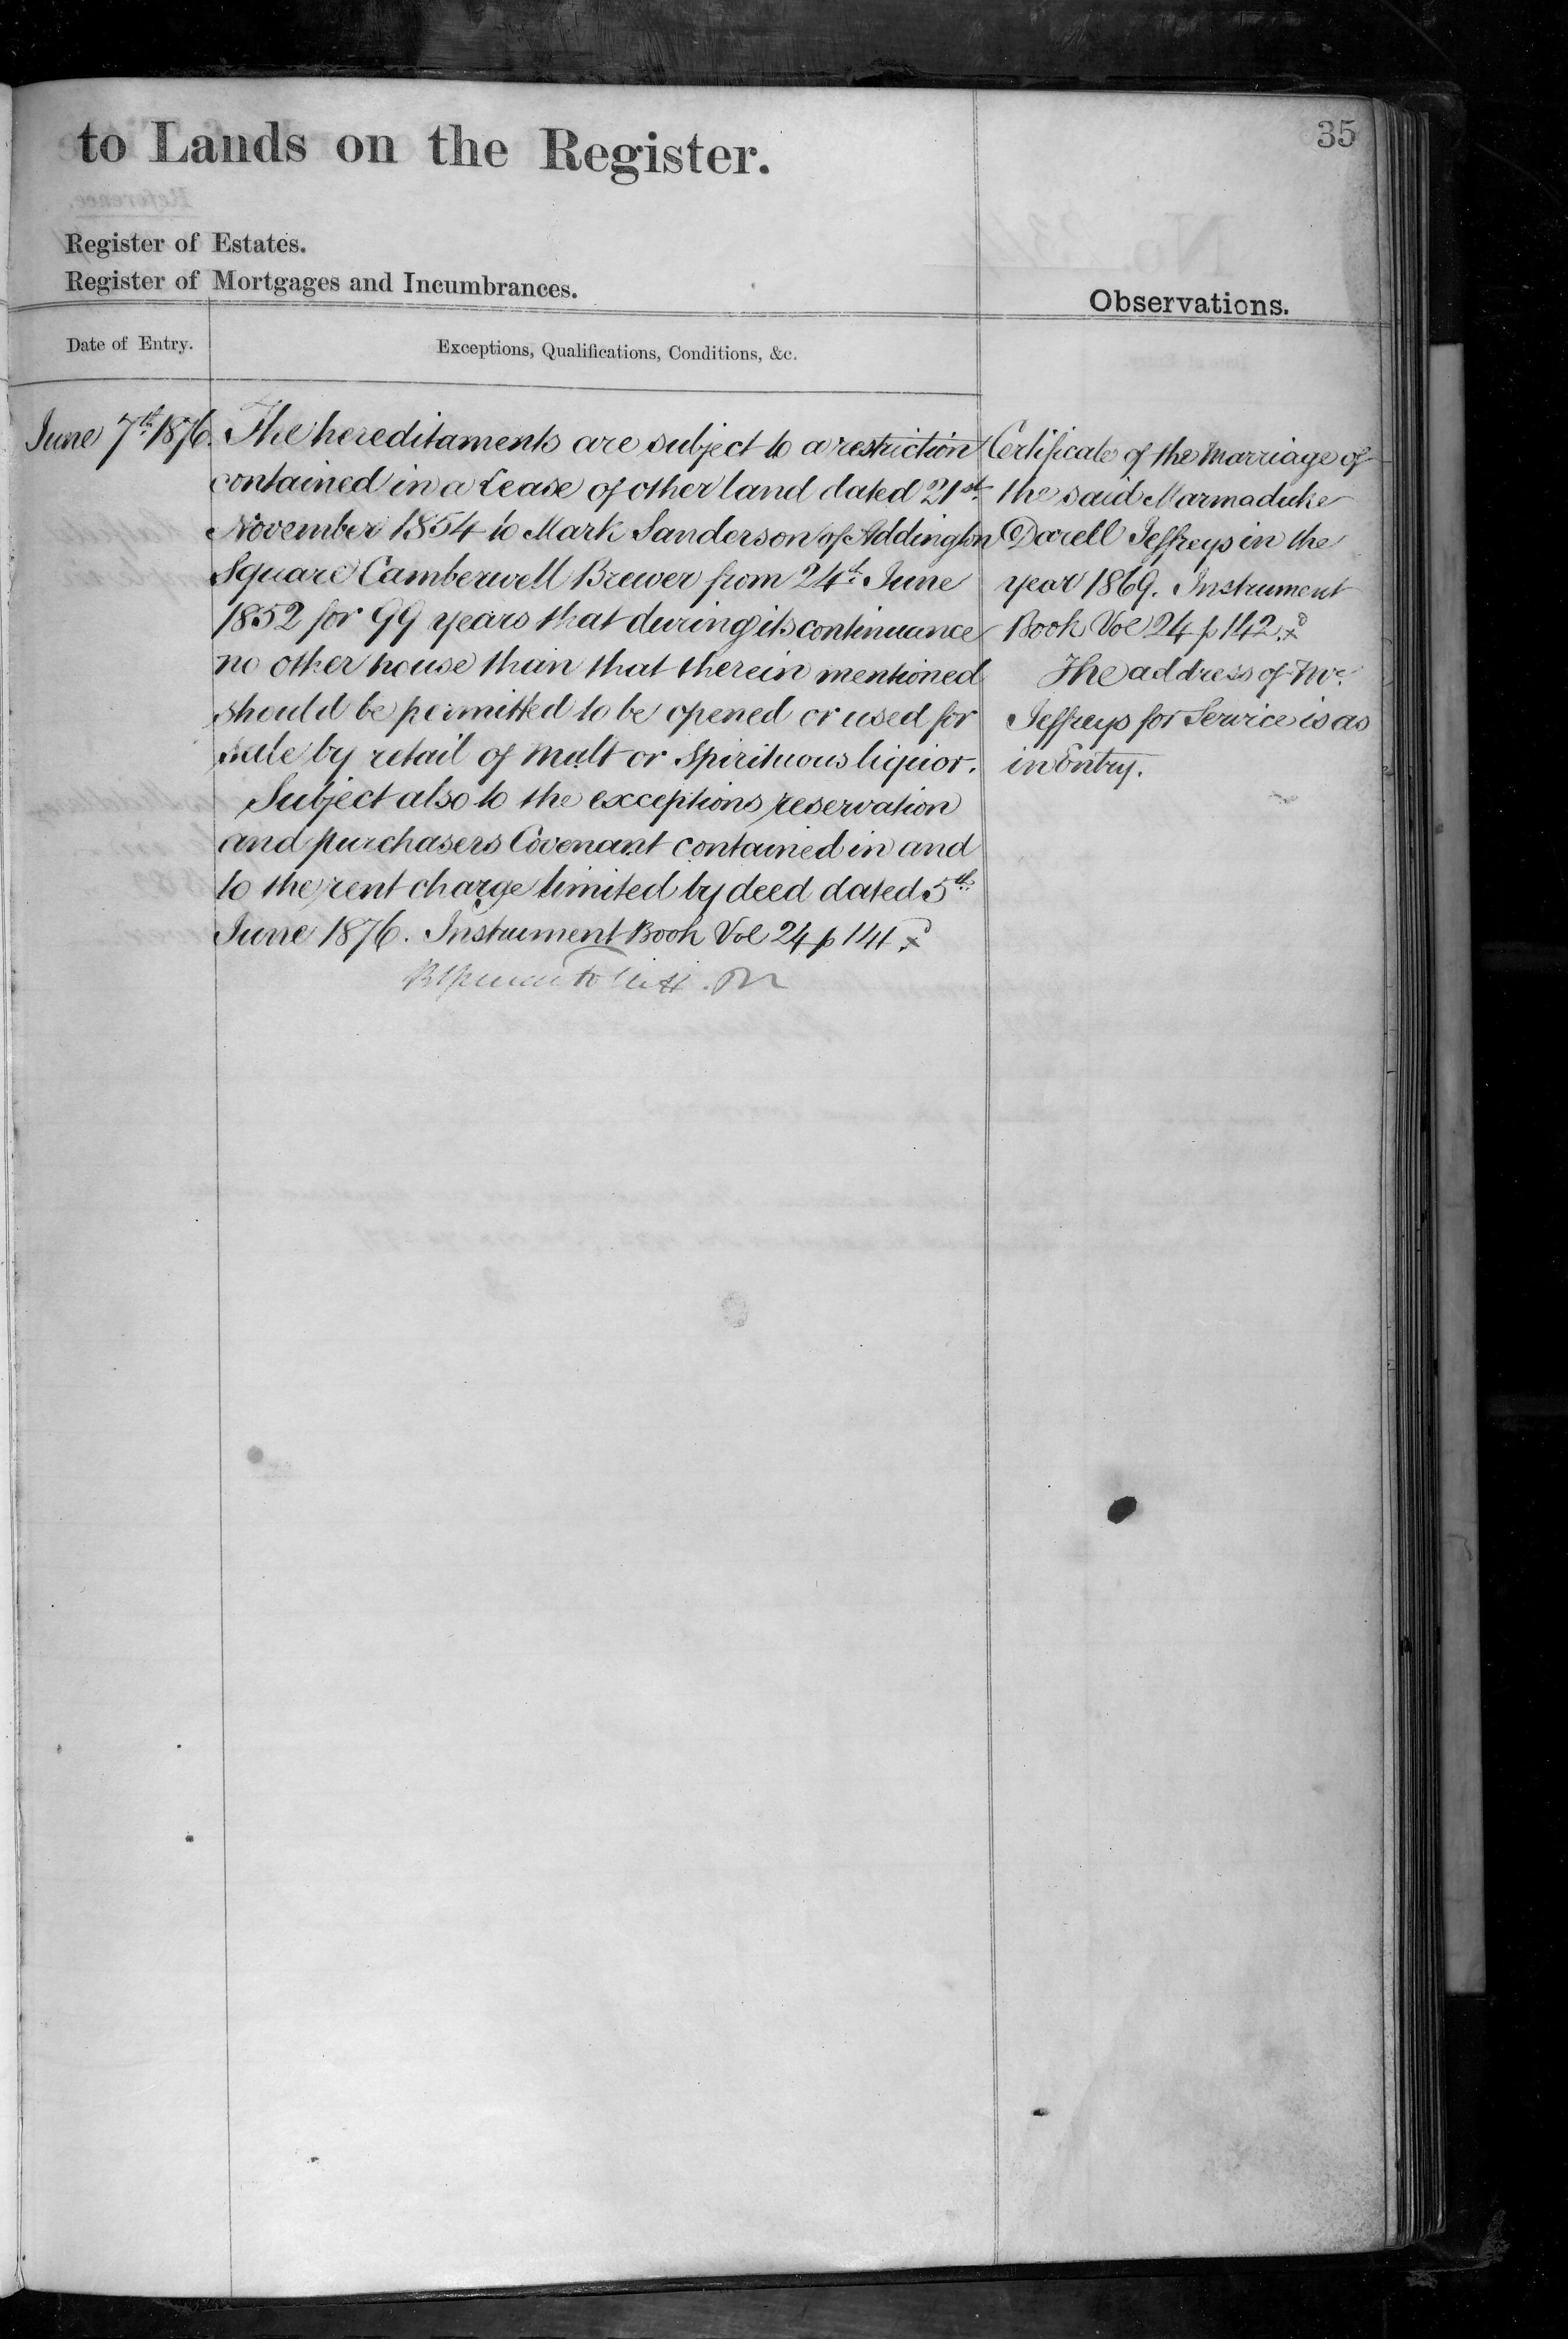 35
to Lands on the Register.
Register of Estates.
Register of Mortgages and Incumbrances.
Observations.
Date of Entry.
Exceptions, Qualifications, Conditions, &c.
June 7th 1876.
The hereditaments are subject to a restriction
contained in a Lease of other land dated 21st
November 1854 to Mark Sanderson of Addington
Square Camberwell Brewer from 24th June
1852 for 99 years that during its continuance
no other house than that therein mentioned
should be permitted to be opened or used for
sale by retail of Malt or Spirituous liquor.
Subject also to the exceptions reservation
and purchasers Covenant contained in and
to the rent charge limited by deed dated 5th
June 1876. Instrument Book Vol 24 p 141
Certificate of the Marriage of
the said Marmaduke
Darell Jeffreys in the
year 1869. Instrument
Book Vol 24 p 142
The address of Mr.
Jeffreys for Service is as
in Entry.